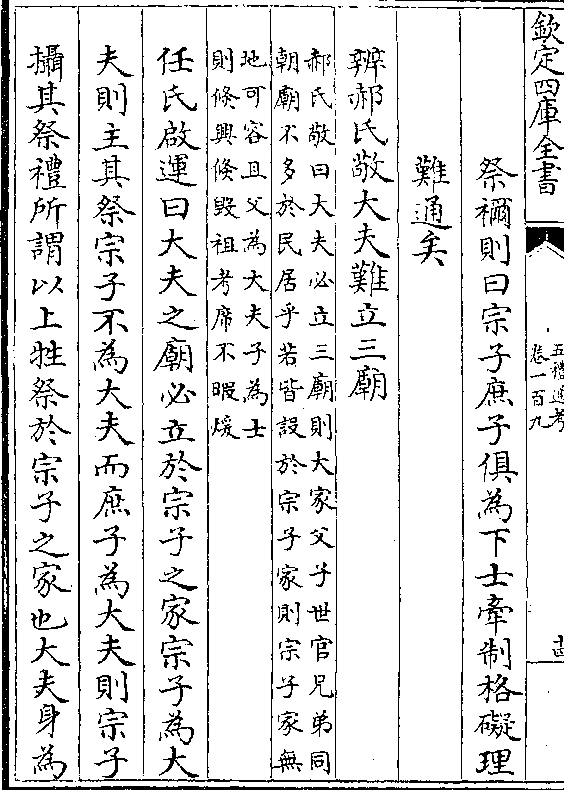 欽定四庫全書
五禮通考
卷一百九
祭禰則曰宗子庶子俱為下士牽制格礙理
難通矣
辨郝氏敬大夫難立三廟
郝氏敬曰大夫必立三廟則大家父子世官兄弟同
朝廟不多於民居乎若皆設於宗子家則宗子家無
地可容且父為大夫子為士
則倐興倐毀祖考席不暇煖
任氏啟運曰大夫之廟必立於宗子之家宗子為大
夫則主其祭宗子不為大夫而庶子為大夫則宗子
攝其祭禮所謂以上牲祭於宗子之家也大夫身為